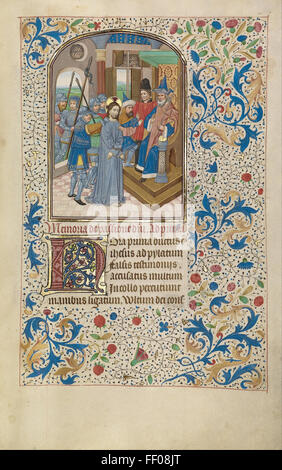 Memoria de passione dni. Ad pri
Hora prima ductus
ihesus ad pylatum
falsis testimonijs
Accusatus multum
In collo percutiunt
manibus ligatum. Vultum dei
alamy
FF08JT